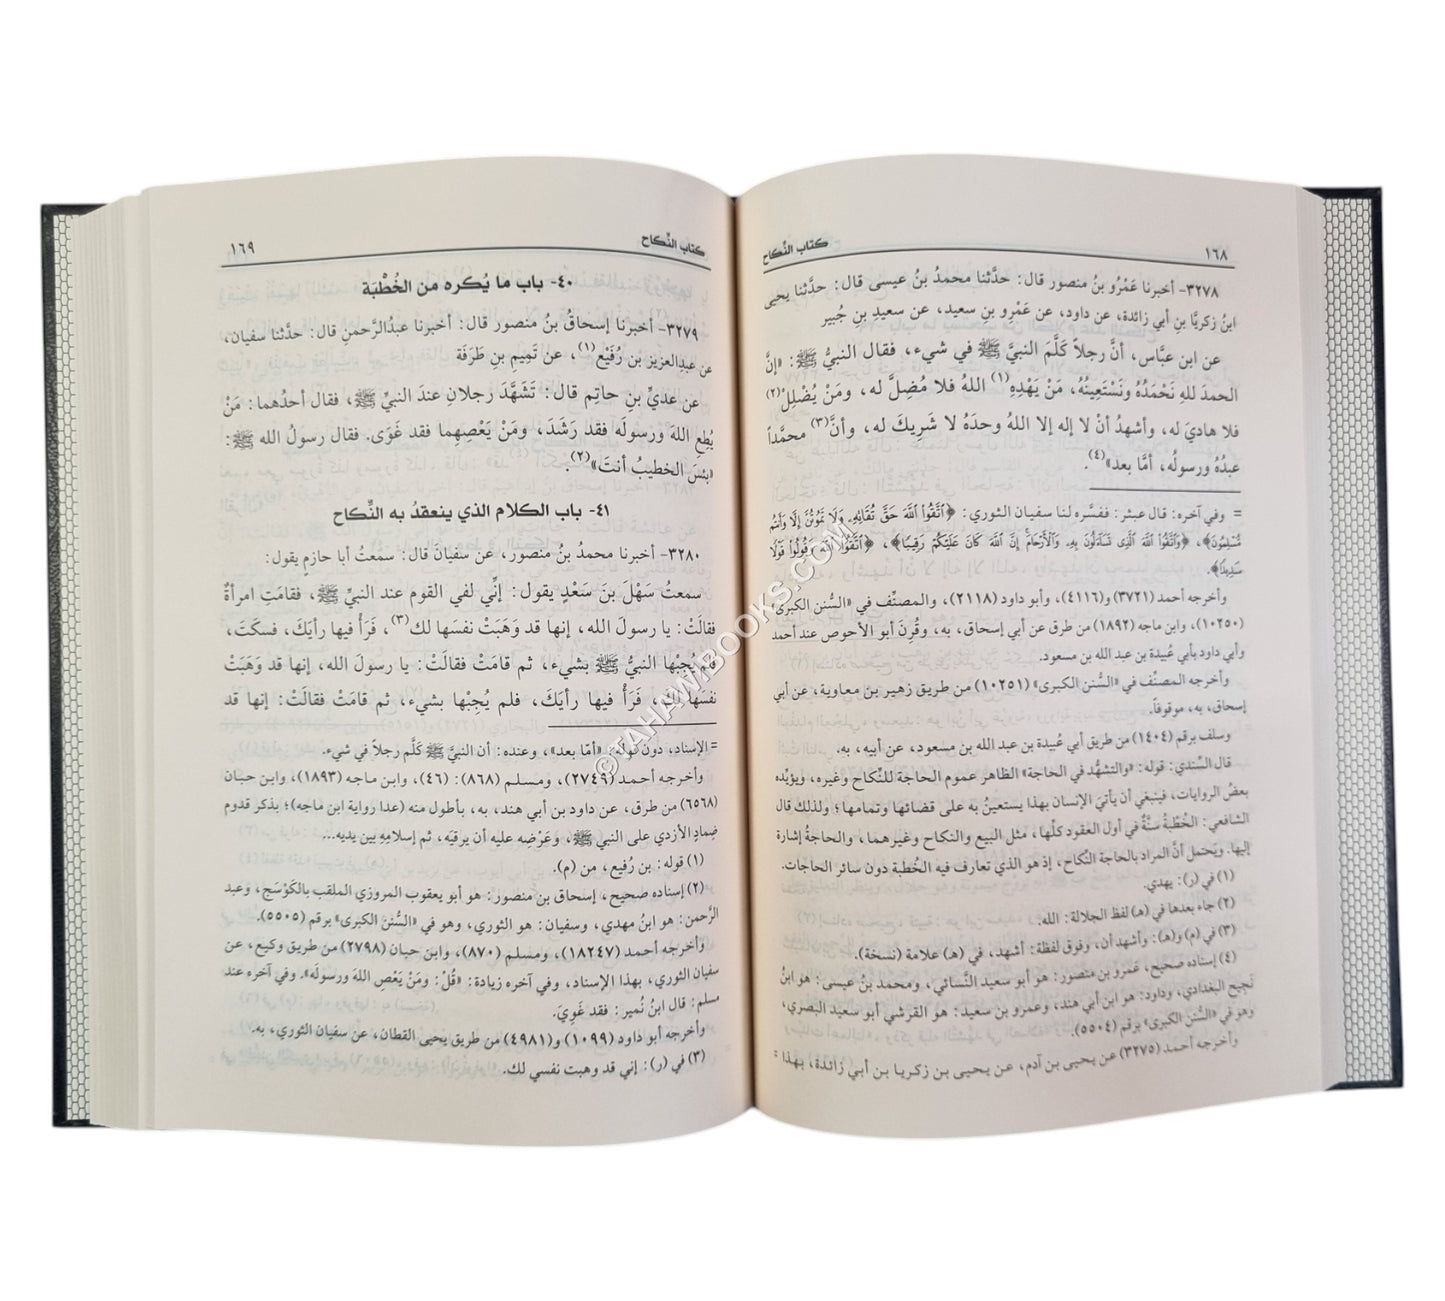 ١٦٨
كتاب النِّكاح
٣٢٧٨- أخبرنا عَمْرُو بنُ منصور قال: حدَّثنا محمدُ بنُ عيسى قال: حدَّثنا يحيى
ابنُ زكريَّا بنِ أبي زائدة، عن داود، عن عَمْرِو بنِ سعيد، عن سعيدِ بنِ جُبير
عن ابن عبَّاس، أنَّ رجلاً كَلَّمَ النبيَّ ﷺ في شيء، فقال النبيُّ ﷺ: «إنَّ
الحمدَ للهِ نَحْمَدُهُ ونَسْتَعِينُهُ، مَنْ يَهْدِهِ(١) اللهُ فلا مُضِلَّ له، ومَنْ يُضْلِلْ(٢)
فلا هاديَ له، وأشهدُ أنْ لا إله إلا اللهُ وحدَهُ لا شَرِيكَ له، وأنَّ(٣) محمَّداً
عبدُهُ ورسولُه، أمَّا بعد»(٤).
= وفي آخره: قال عبثر: ففسَّره لنا سفيان الثوري: ﴿اتَّقُوا اللَّهَ حَقَّ تُقَاتِهِ وَلَا تَمُوتُنَّ إِلَّا وَأَنتُم
مُّسْلِمُونَ﴾، ﴿وَاتَّقُوا اللَّهَ الَّذِي تَسَاءَلُونَ بِهِ وَالْأَرْحَامَ إِنَّ اللَّهَ كَانَ عَلَيْكُمْ رَقِيبًا﴾، ﴿اتَّقُوا اللَّهَ وَقُولُوا قَوْلًا
سَدِيدًا﴾.
وأخرجه أحمد (٣٧٢١) و(٤١١٦)، وأبو داود (٢١١٨)، والمصنِّف في «السُّنن الكبرى»
(١٠٢٥٠)، وابن ماجه (١٨٩٢) من طرق عن أبي إسحاق، به، وقُرِنَ أبو الأحوص عند أحمد
وأبي داود بأبي عُبيدة بن عبد الله بن مسعود.
وأخرجه المصنِّف في «السُّنن الكبرى» (١٠٢٥١) من طريق زهير بن معاوية، عن أبي
إسحاق، به، موقوفاً.
وسلف برقم (١٤٠٤) من طريق أبي عُبيدة بن عبد الله بن مسعود، عن أبيه، به.
قال السِّندي: قوله: «والتشهُّد في الحاجة» الظاهر عموم الحاجة للنِّكاح وغيره، ويؤيِّده
بعضُ الروايات، فينبغي أن يأتيَ الإنسان بهذا يستعينُ به على قضائها وتمامها؛ ولذلك قال
الشافعي: الخُطْبةُ سنَّةٌ في أول العقود كلِّها، مثل البيع والنكاح وغيرهما، والحاجةُ إشارة
إليها. ويَحتمل أنَّ المراد بالحاجة النِّكاح، إذ هو الذي تعارف فيه الخُطبة دون سائر الحاجات.
(١) في (ر): يهدي.
(٢) جاء بعدها في (هـ) لفظ الجلالة: الله.
(٣) في (م) و(هـ): وأشهد أن، وفوق لفظة: أشهد، في (هـ) علامة (نسخة).
(٤) إسناده صحيح، عَمرو بن منصور: هو أبو سعيد النَّسائي، ومحمد بنُ عيسى: هو ابنُ
نَجيح البغدادي، وداود: هو ابن أبي هند، وعمرو بن سعيد: هو القرشي أبو سعيد البصري،
وهو في «السُّنن الكبرى» برقم (٥٥٠٤).
وأخرجه أحمد (٣٢٧٥) عن يحيى بن آدم، عن يحيى بن زكريا بن أبي زائدة، بهذا =
كتاب النِّكاح
١٦٩
٤٠- باب ما يُكره من الخُطْبَة
٣٢٧٩- أخبرنا إسحاقُ بنُ منصور قال: أخبرنا عبدُالرَّحمنِ قال: حدَّثنا سفيان،
عن عبدِالعزيز بن رُفَيْع(١)، عن تَمِيمِ بنِ طَرَفَة
عن عَديِّ بنِ حاتِمٍ قال: تَشَهَّدَ رجلانِ عندَ النبيِّ ﷺ، فقال أحدُهما: مَنْ
يُطِعِ اللهَ ورسولَه فقد رَشَدَ، ومَنْ يَعْصِهِما فقد غَوَى. فقال رسولُ الله ﷺ:
«بئسَ الخطيبُ أنتَ»(٢).
٤١- باب الكلام الذي ينعقدُ به النِّكاح
٣٢٨٠- أخبرنا محمدُ بنُ منصور، عن سفيانَ قال: سمعتُ أبا حازمٍ يقول:
سمعتُ سَهْلَ بنَ سَعْدٍ يقول: إنِّي لفي القوم عند النبيِّ ﷺ، فقامَتِ امرأةٌ
فقالَتْ: يا رسولَ الله، إنها قد وَهَبَتْ نفسَها لك(٣)، فَرَأْ فيها رأيَكَ، فسكَتَ،
فلم يُجِبْها النبيُّ ﷺ بشيء، ثم قامَتْ فقالَتْ: يا رسولَ الله، إنها قد وَهَبَتْ
نفسَها لك، فَرَأْ فيها رأيَكَ، فلم يُجِبْها بشيء، ثم قامَتْ فقالَتْ: إنها قد
= الإسناد، دون قوله: «أمَّا بعد»، وعنده: أن النبيَّ ﷺ كَلَّم رجلاً في شيء.
وأخرجه أحمد (٢٧٤٩)، ومسلم (٨٦٨): (٤٦)، وابن ماجه (١٨٩٣)، وابن حبان
(٦٥٦٨) من طرق، عن داود بن أبي هند، به، بأطول منه (عدا رواية ابن ماجه)؛ بذكر قدوم
ضِمادٍ الأزدي على النبي ﷺ، وعَرْضِه عليه أن يرقيَه، ثم إسلامِهِ بين يديه...
(١) قوله: بن رُفيع، من (م).
(٢) إسناده صحيح، إسحاق بن منصور: هو أبو يعقوب المروزي الملقب بالكَوْسَج، وعبد
الرَّحمن: هو ابنُ مهدي، وسفيان: هو الثوري، وهو في «السُّنن الكبرى» برقم (٥٥٠٥).
وأخرجه أحمد (١٨٢٤٧)، ومسلم (٨٧٠)، وابن حبان (٢٧٩٨) من طريق وكيع، عن
سفيان الثوري، بهذا الإسناد، وفي آخره زيادة: «قُلْ: ومَنْ يَعْصِ اللهَ ورسولَه». وفي آخره عند
مسلم: قال ابنُ نُمير: فقد غَوِيَ.
وأخرجه أبو داود (١٠٩٩) و(٤٩٨١) من طريق يحيى القطان، عن سفيان الثوري، به.
(٣) في (ر): إني قد وهبت نفسي لك.
© TAHAWIBOOKS.COM